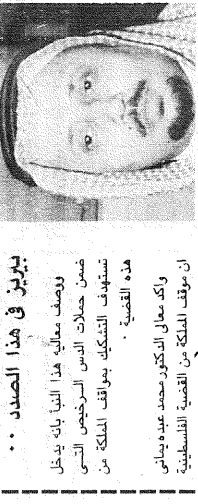 بيريز في هذا الصدد ..
ووصف معاليه هذا النبأ بأنه يدخل
ضمن حملات الدس الرخيص التي
تستهدف التشكيك بمواقف المملكة من
هذه القضية .
واكد معالي الدكتور محمد عبده يماني
ان موقف المملكة من القضية الفلسطينية